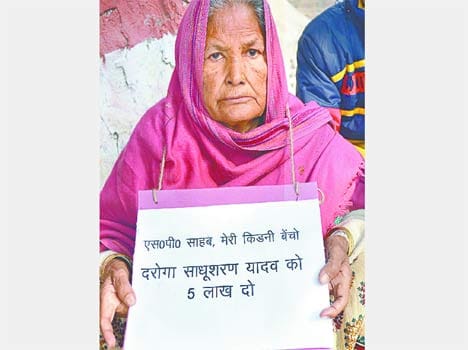 एस0पी0 साहब, मेरी किडनी बेंचो
दरोगा साधूशरण यादव को
5 लाख दो